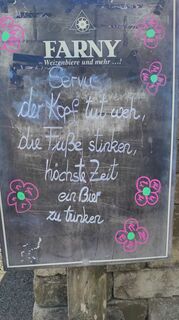 FARNY
Weizenbiere und mehr ...!
Servus
der Kopf tut weh,
die Füße stinken,
höchste Zeit
ein Bier
zu trinken